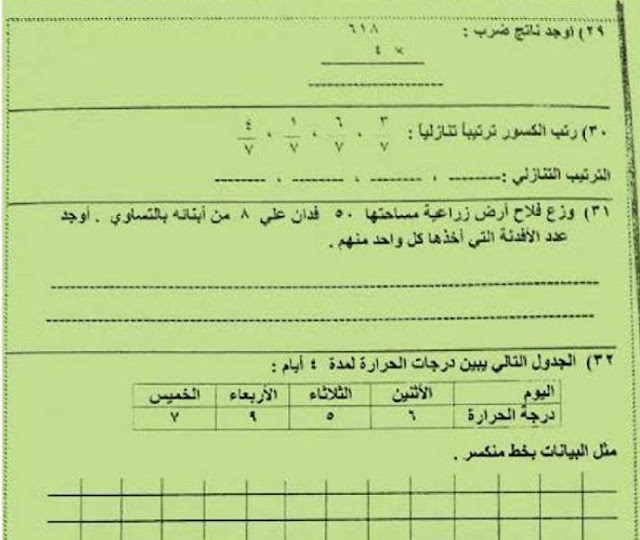 ٢٩) أوجد ناتج ضرب : ٦١٨
× ٤
٣٠) رتب الكسور ترتيباً تنازلياً : ٣/٧ ، ٦/٧ ، ١/٧ ، ٤/٧
الترتيب التنازلي :-------- ، -------- ، -------- ، --------
٣١) وزع فلاح أرض زراعية مساحتها ٥٠ فدان علي ٨ من أبنائه بالتساوي . أوجد
عدد الأفدنة التي أخذها كل واحد منهم .
٣٢) الجدول التالي يبين درجات الحرارة لمدة ٤ أيام :
اليوم الأثنين الثلاثاء الأربعاء الخميس
درجة الحرارة ٦ ٥ ٩ ٧
مثل البيانات بخط منكسر .